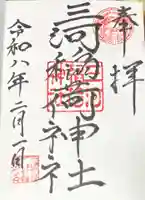 奉拝
三河稲荷神社
令和八年二月一日